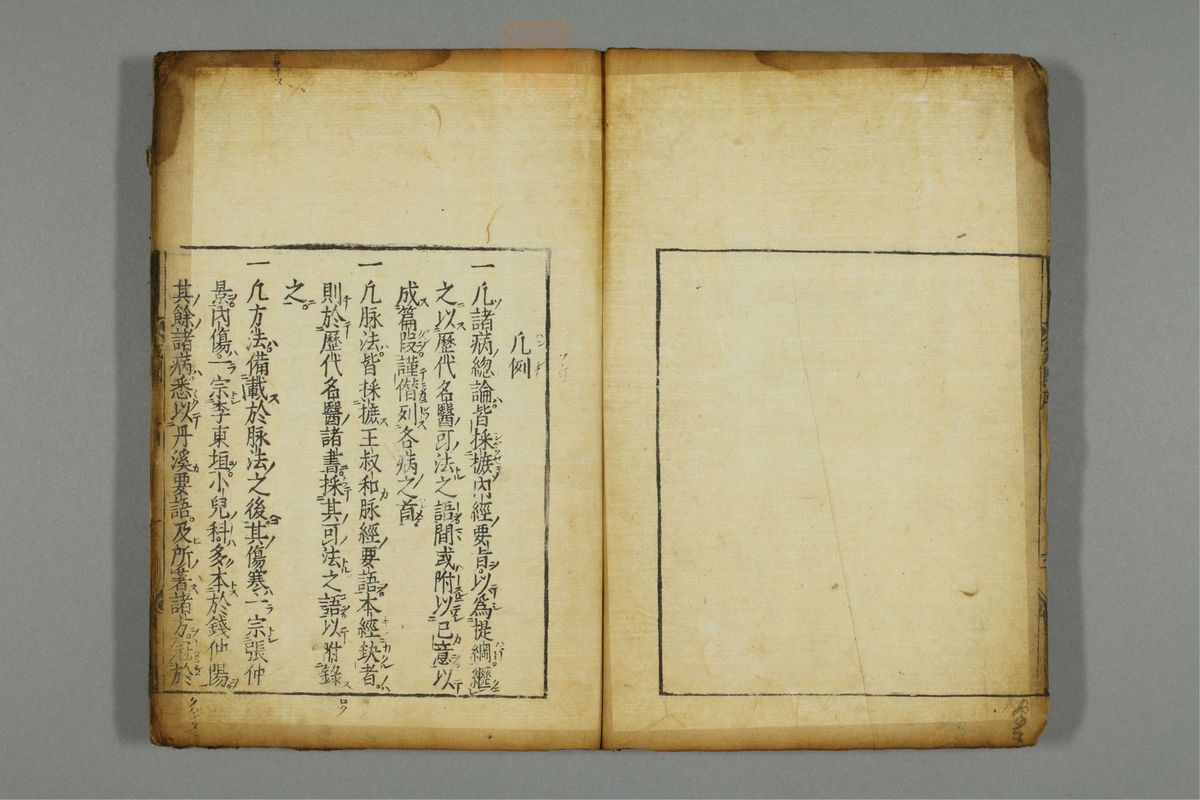 凡例
一凡諸病總論皆採摭內經要旨以爲提綱繼
之以歷代名醫可法之語間或附以己意以
成篇段謹僭列各病之首
一凡脉法皆採摭王叔和脉經要語本經缺者
則於歷代名醫諸書採其可法之語以附錄
之
一凡方法備載於脉法之後其傷寒一宗張仲
景內傷一宗李東垣小兒科多本於錢仲陽
其餘諸病悉以丹溪要語及所著諸方冠於